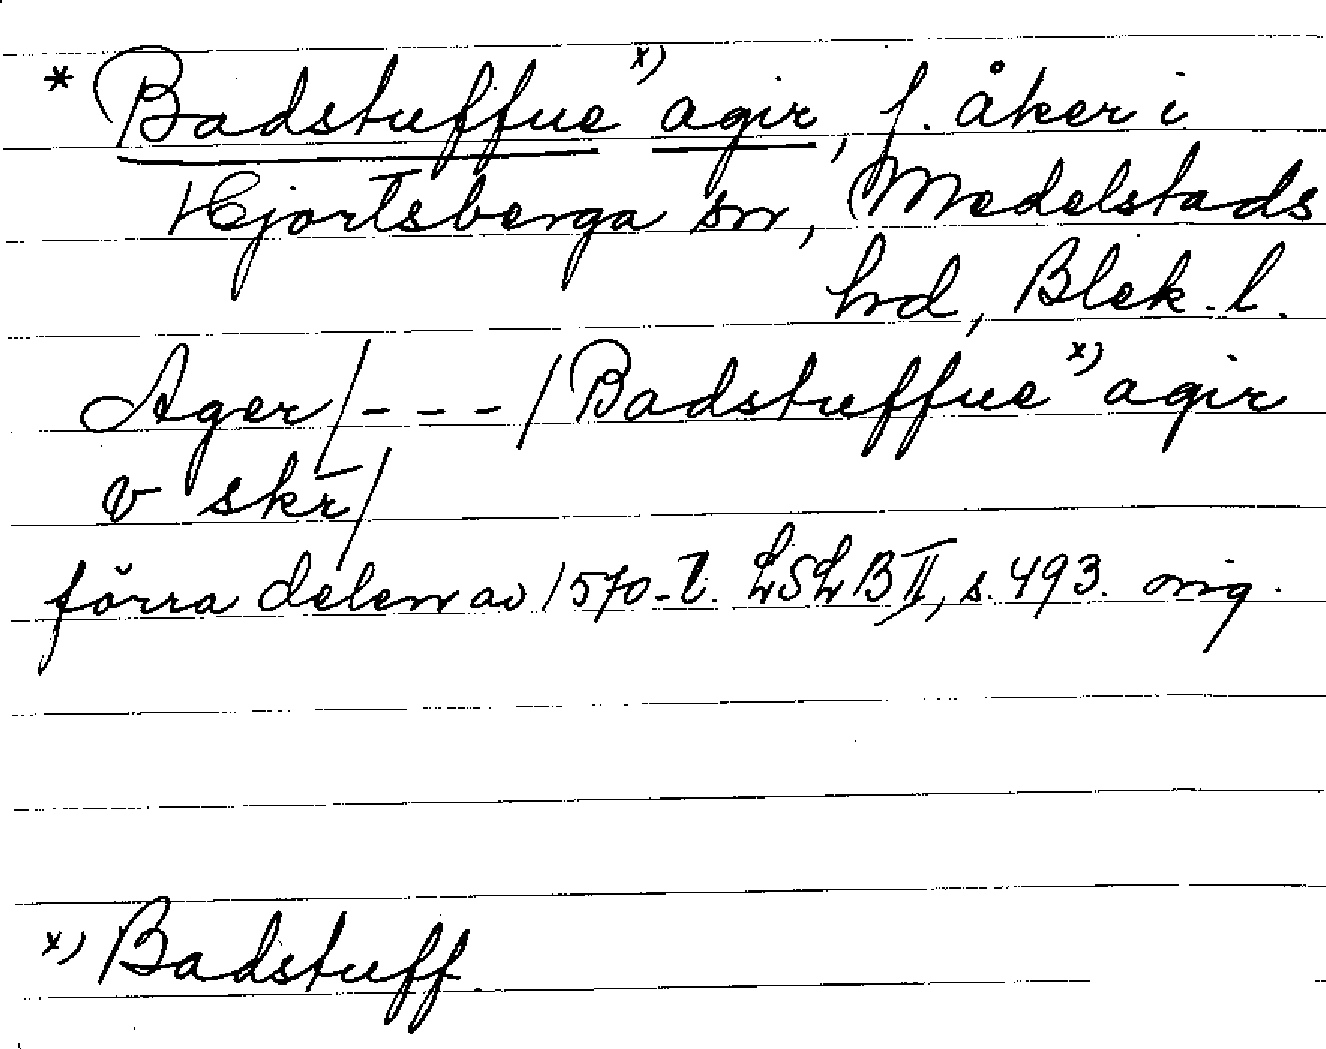 * Badstuffue x) agir, f. åker i
Hjortsberga sn, Medelstads
hd, Blek. l.
Ager/- - -/Badstuffue x) agir
v skr/
förra delen av 1570-t. LSLB II, s. 493. orig.
x) Badstuff.